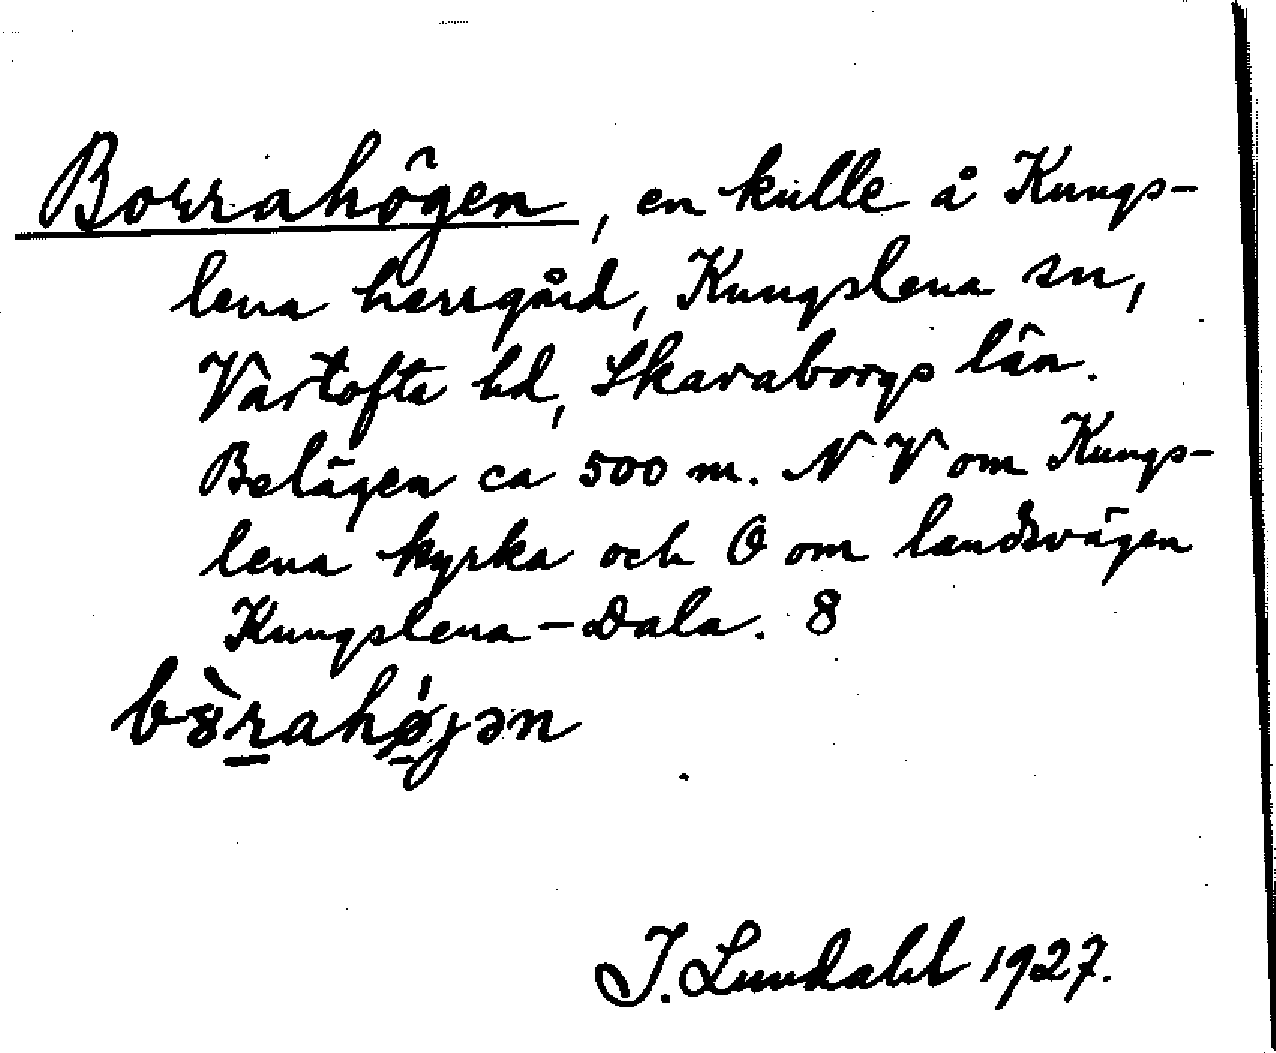 Borrahögen, en kulle å Kungs-
lena herrgård, Kungslena sn,
Vartofta hd, Skaraborgs län.
Belägen ca 500 m. NV om Kungs-
lena kyrka och O om landsvägen
Kungslena-Dala. 8
b8̀rahó̸jən
J. Lundahl 1927.